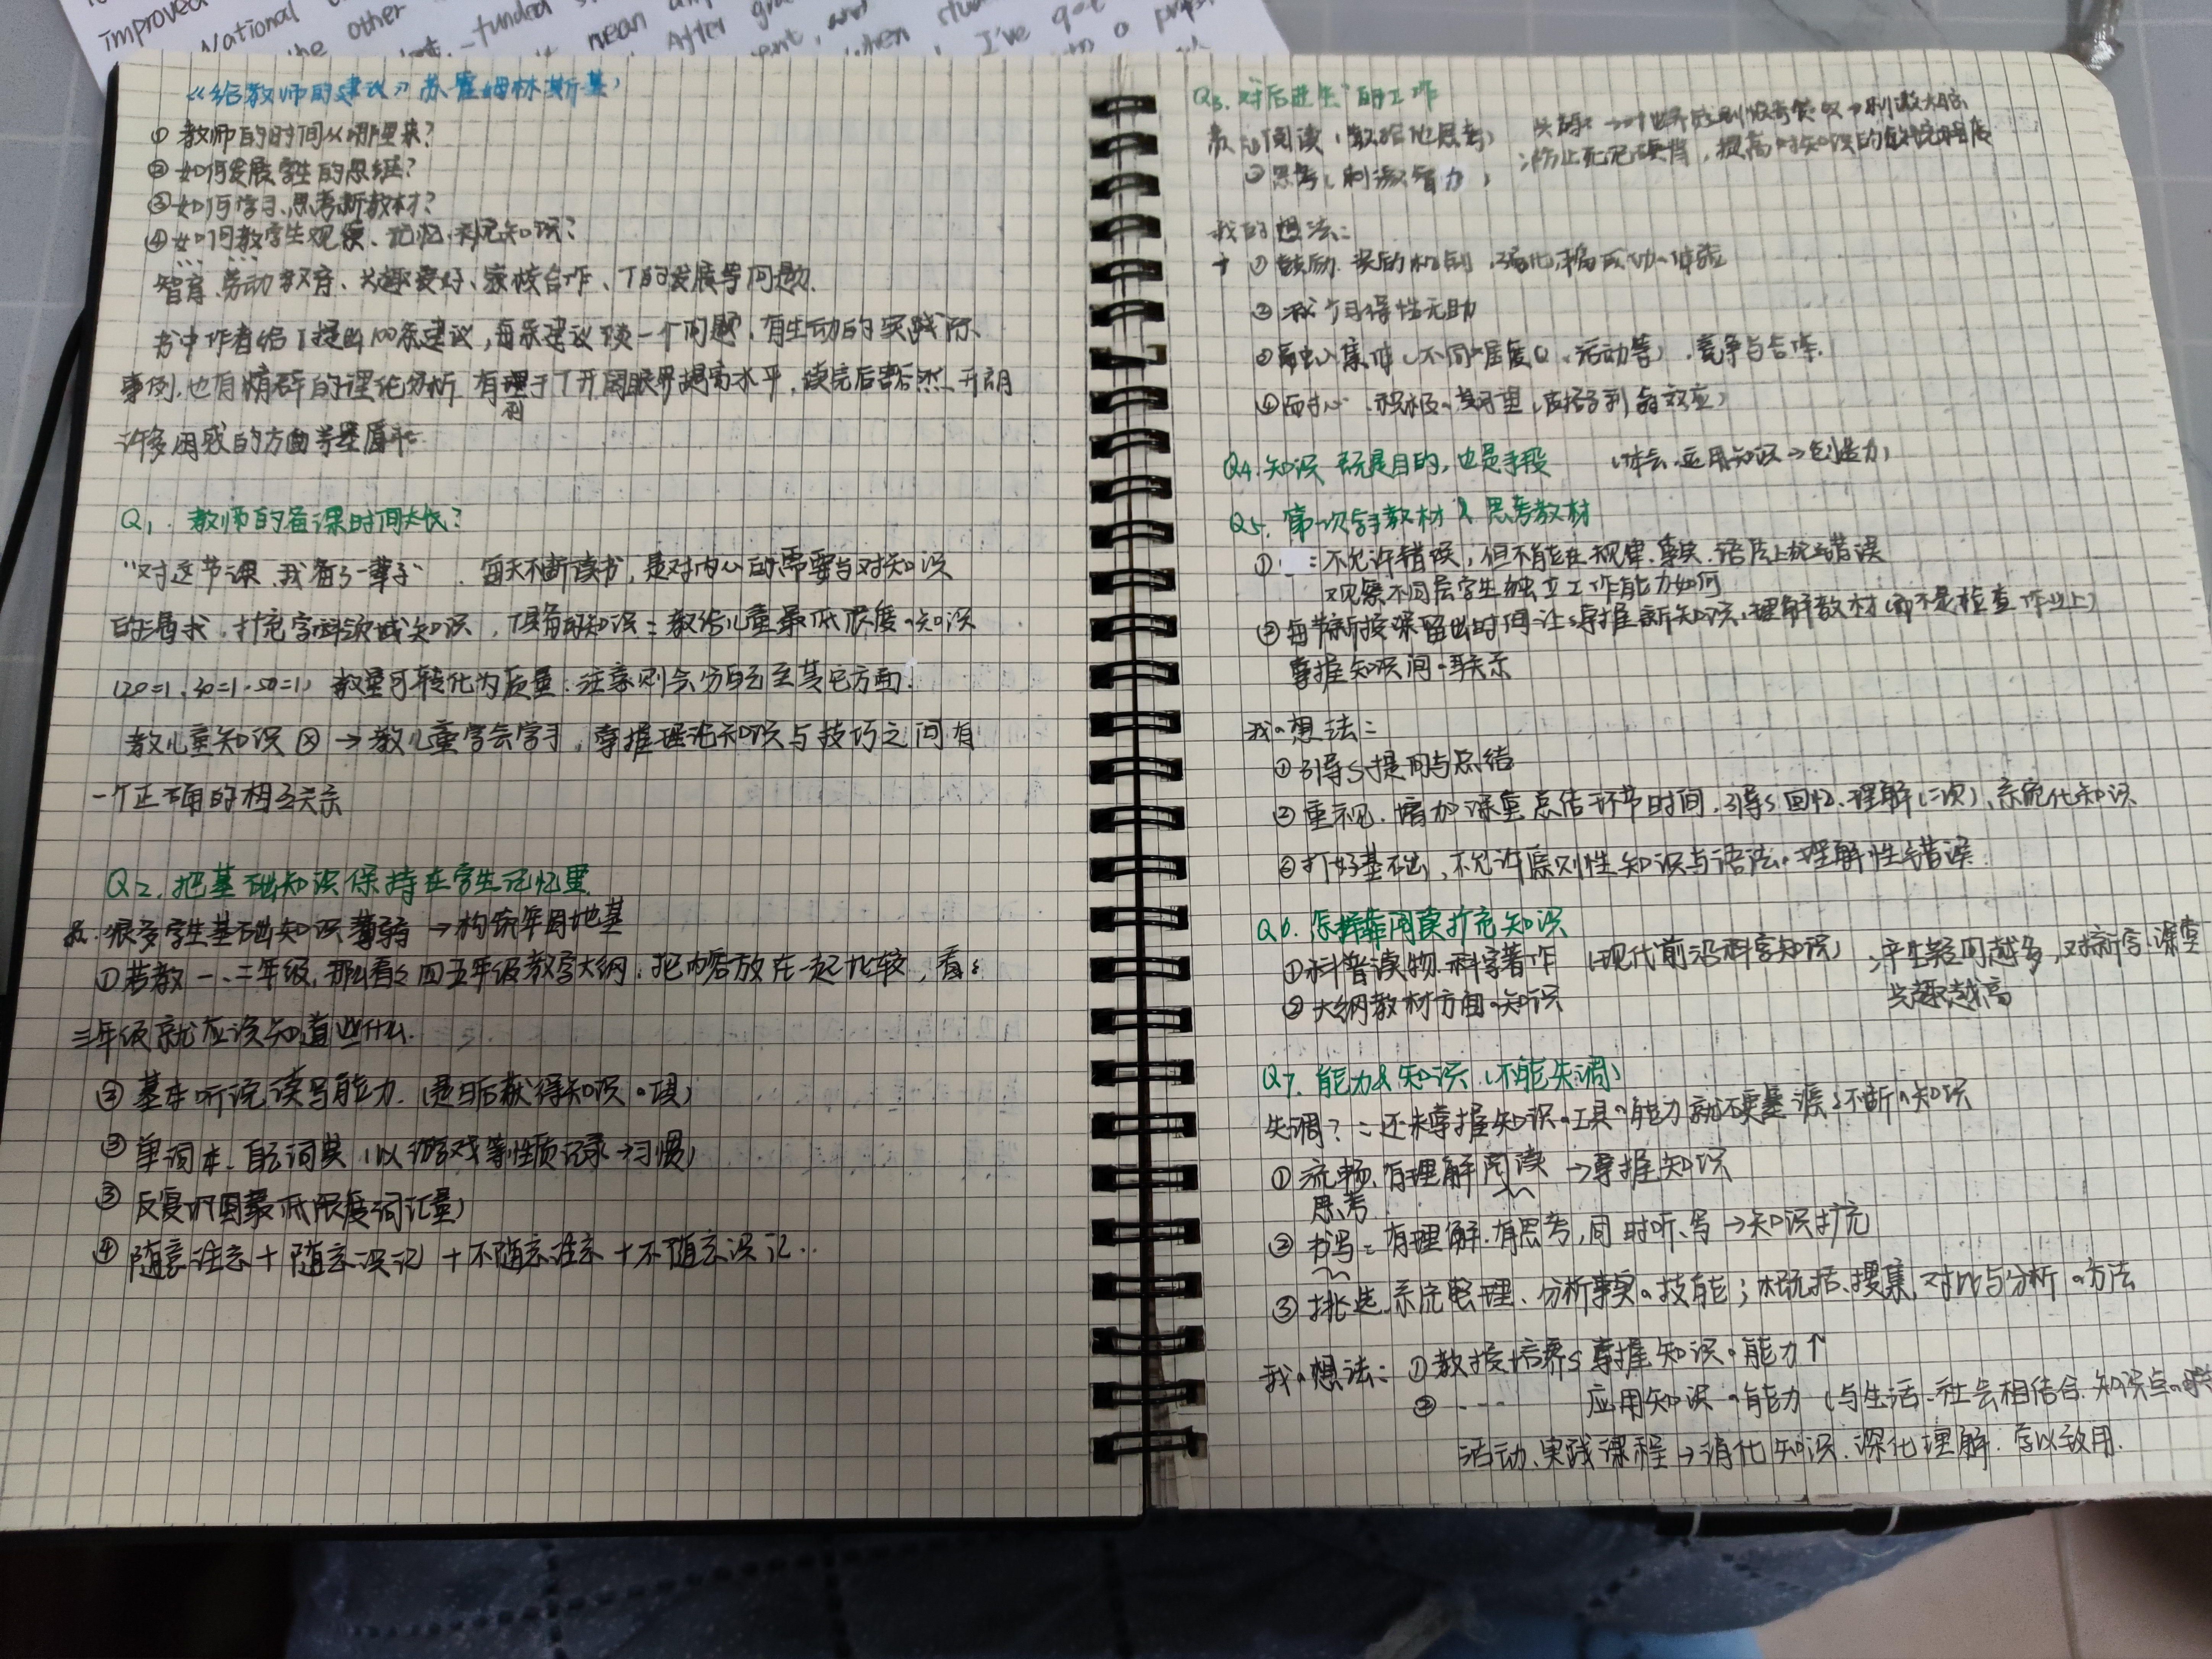 improved
National
the other
-funded
mean
After
when
I've got
《给教师的建议》苏霍姆林斯基
① 教师的时间从哪里来?
② 如何发展学生的思维?
③ 如何学习、思考新教材?
④ 如何教学生观察、记忆、知识?
智育、劳动教育、兴趣爱好、家校合作、T的发展等问题.
书中作者给T提出100条建议,每条建议谈一个问题,有生动的实际
事例,也有精辟的理论分析,有利于T开阔眼界提高水平,读完后豁然开朗
许多困惑的方面
Q1. 教师的备课时间太长?
"对这节课,我备了一辈子" 每天不断读书,是对内心的需要与对知识
的渴求,扩充学科领域知识,T具备的知识:教给儿童最低限度的知识
(20=1,30=1,50=1) 数量可转化为质量.注意则会分配至其它方面.
教儿童知识 ⊗ → 教儿童学会学习,掌握理论知识与技巧之间有
一个正确的相互关系
Q2. 把基础知识保持在学生记忆里
很多学生基础知识薄弱 → 构筑牢固地基
① 若教一、二年级,那么看看四五年级教学大纲,把内容放在一起比较,看看
三年级就应该知道些什么.
② 基本听说读写能力.(是日后获得知识的 )
③ 单词本、自己词典(以游戏等性质记录→习惯)
③ 反复巩固最低限度词汇量)
④ 随意注意+随意识记+不随意注意+不随意识记..
Q3. 对"后进生"的工作
阅读(教给他思考)
② 思考(刺激智力)
防止死记硬背,提高对知识的
我的想法:
① 鼓励、奖励机制,强化,成功体验
② 习得性无助
③ 融入集体(不同难度Q、活动等),竞争与合作.
④ 耐心、积极的期望(皮格马利翁效应)
Q4. 知识既是目的,也是手段 (体会、运用知识→创造力)
Q5. 第一次学习教材 & 思考教材
① :不允许错误,但不能在规律、事实、语法上犯错误
观察不同层学生独立工作能力如何
② 每节新授课留出时间让S掌握新知识,理解教材(而不是检查作业上)
掌握知识间的联系
我的想法:
① 引导S提问与总结
② 重视、增加课堂总结环节时间,引导S回忆、理解(二次)、系统化知识
③ 打好基础,不允许原则性知识与语法的理解性错误
Q6. 怎样靠阅读扩充知识
① 科普读物、科学著作 (现代前沿科学知识) 产生疑问越多,对新学、课堂
兴趣越高
② 大纲教材方面的知识
Q7. 能力 & 知识 (不能失调)
失调?:还未掌握知识的工具的能力就 不断的知识
① 流畅、有理解阅读 → 掌握知识
思考
② 书写:有理解、有思考,同时听、写 → 知识扩充
③ 挑选、系统整理、分析事实的技能;概括、搜集、对比与分析的方法
我的想法:① 教授培养S掌握知识的能力↑
② --- 应用知识的能力(与生活、社会相结合.知识点的
活动、实践课程→消化知识、深化理解.学以致用.